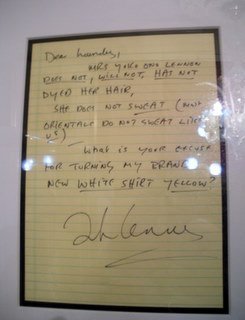 Dear Laundry,
MRS YOKO ONO LENNON
DOES NOT, WILL NOT, HAS NOT
DYED HER HAIR,
SHE DOES NOT SWEAT (MOST
ORIENTALS DO NOT SWEAT LIKE
US)
WHAT IS YOUR EXCUSE
FOR TURNING MY BRAND
NEW WHITE SHIRT YELLOW?
John Lennon